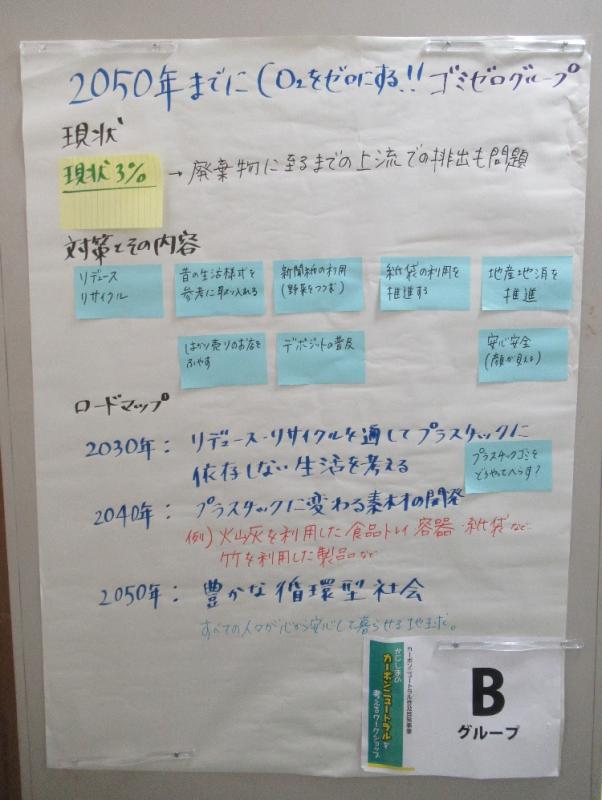 2050年までにCO₂をゼロにする!! ゴミゼログループ
現状
現状3%
→廃棄物に至るまでの上流での排出も問題
対策とその内容
リデュース
リサイクル
昔の生活様式を
参考に取り入れる
新聞紙の利用
(野菜をつつむ)
紙袋の利用を
推進する
地産地消を
推進
はかり売りのお店を
ふやす
デポジットの普及
安心安全
(顔が見える)
ロードマップ
2030年: リデュース・リサイクルを通してプラスチックに
依存しない生活を考える
プラスチックゴミを
どうやってへらす?
2040年: プラスチックに変わる素材の開発
例)火山灰を利用した食品トレイ 容器・紙袋など
竹を利用した製品など
2050年: 豊かな循環型社会
すべての人々が心から安心して暮らせる地球。
カーボンニュートラル普及啓発事業
かごしまの
カーボンニュートラルを
考えるワークショップ
B
グループ